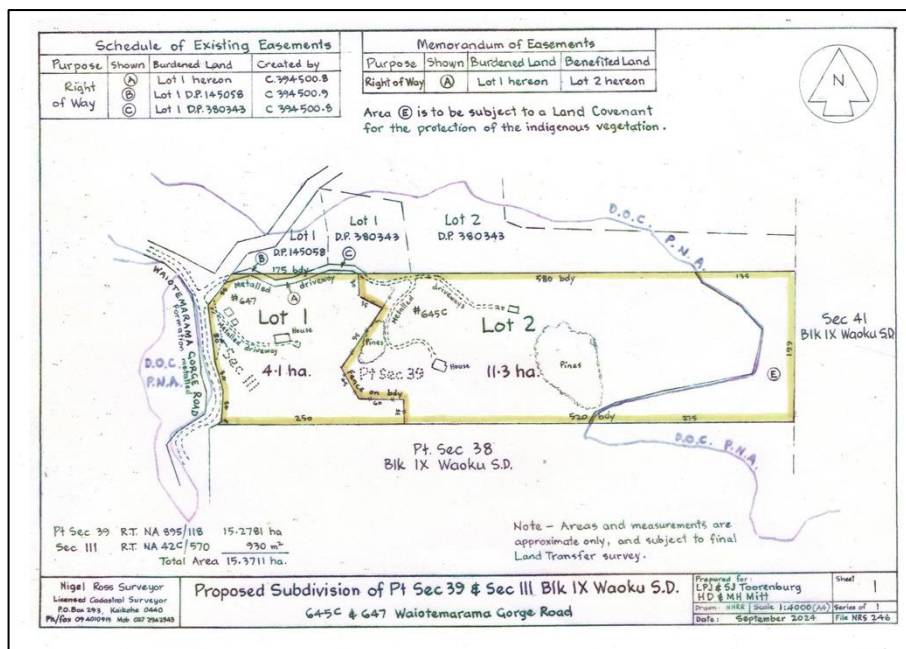 Schedule of Existing Easements
Purpose Shown Burdened Land Created by
Right of Way
A Lot 1 hereon C.394500.8
B Lot 1 D.P.145058 C 394500.9
C Lot 1 D.P.380343 C 394500.8
Memorandum of Easements
Purpose Shown Burdened Land Benefited Land
Right of Way A Lot 1 hereon Lot 2 hereon
Area E is to be subject to a Land Covenant
for the protection of the indigenous vegetation.
N
D.O.C. P.N.A.
Lot 1
D.P. 145058
Lot 1
D.P. 380343
Lot 2
D.P. 380343
B
C
175 bdy
580 bdy
135
Metalled driveway
A
#647
Lot 1
House
Metalled driveway
Sec III
4.1 ha.
250
WAIOTEMARAMA GORGE ROAD
Formation metalled
D.O.C.
P.N.A.
Metalled driveways
#645c
Lot 2
Pines
Pt Sec 39
House
11.3 ha.
Pines
Fence on bdy
60
520 bdy
275
199
E
Sec 41
Blk IX Waoku S.D.
D.O.C. P.N.A.
Pt. Sec 38
Blk IX Waoku S.D.
Pt Sec 39 R.T. NA 895/118 15.2781 ha
Sec III R.T. NA 42C/570 930 m²
Total Area 15.3711 ha.
Note - Areas and measurements are
approximate only, and subject to final
Land Transfer survey.
Nigel Ross Surveyor
Licensed Cadastral Surveyor
P.O.Box 293, Kaikohe 0440
Ph/fax 09 4010919 Mob 027 2942343
Proposed Subdivision of Pt Sec 39 & Sec III Blk IX Waoku S.D.
645c & 647 Waiotemarama Gorge Road
Prepared for:
LPJ & SJ Toorenburg
HD & MH Mitt
Drawn: NHRR Scale 1:4000 (A4)
Date: September 2024
Sheet 1
Series of 1
File NRS 246